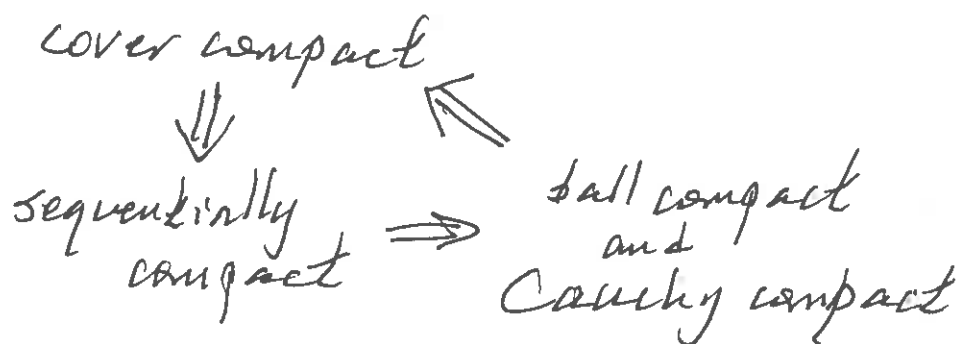 cover compact
sequentially
compact
ball compact
and
Cauchy compact